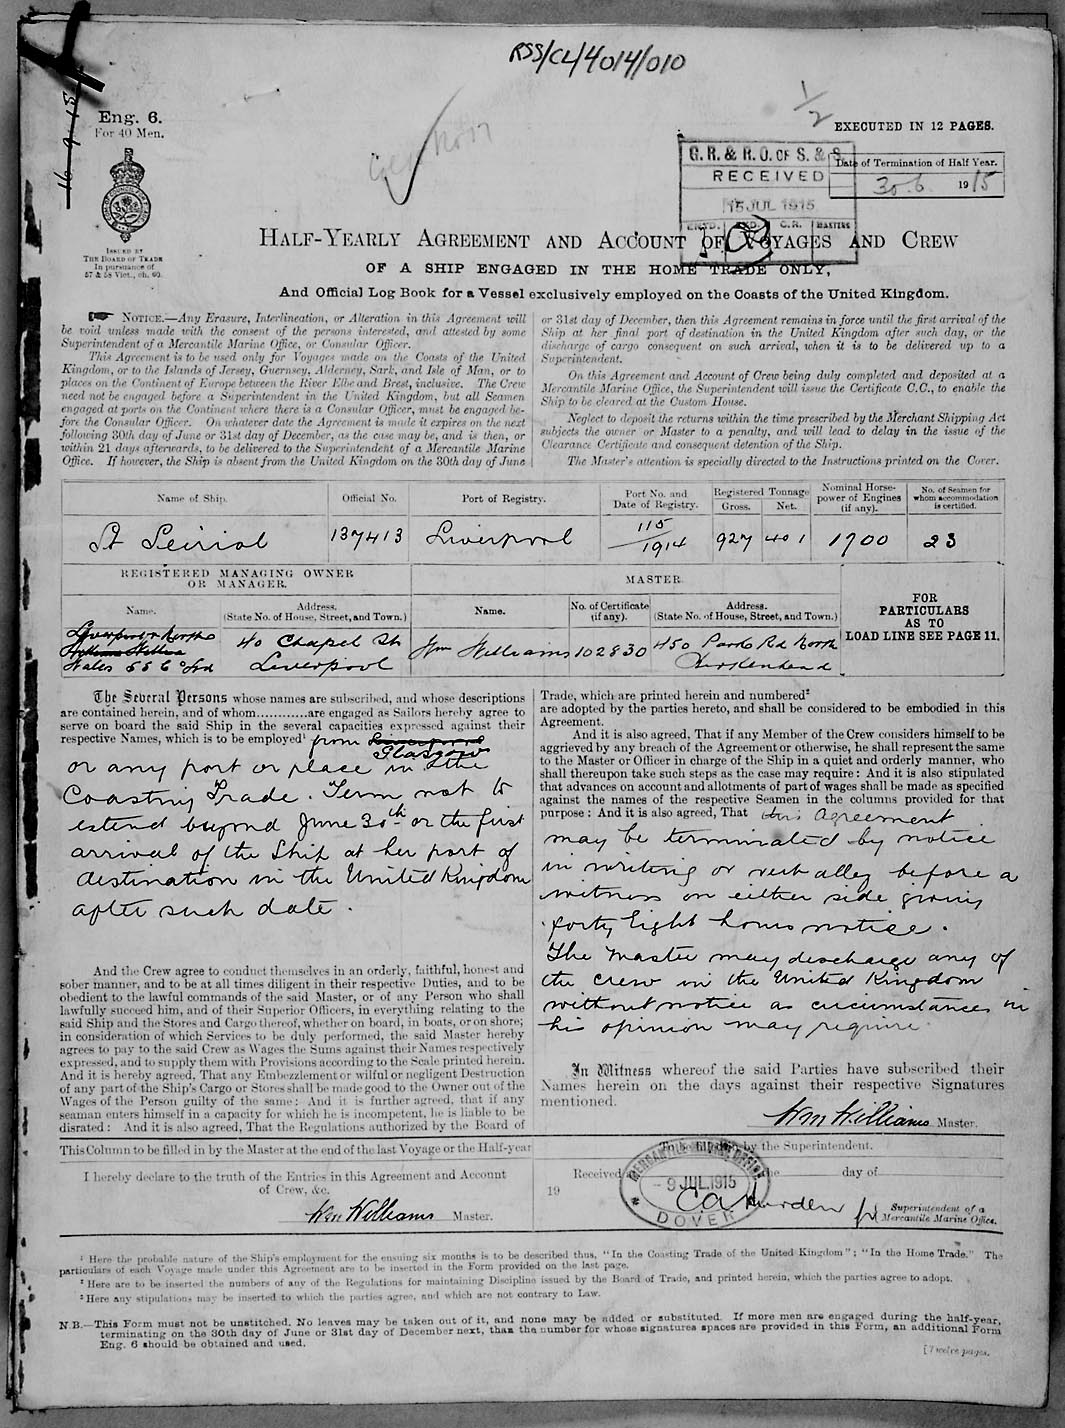 RSS/CL/4014/010
1/2
16.9.15
Eng. 6.
For 40 Men.
ISSUED BY
THE BOARD OF TRADE
In pursuance of
57 & 58 Vict., ch. 60.
EXECUTED IN 12 PAGES.
G.R. & R.O. OF S. & S.
RECEIVED
15 JUL 1915
C.R.
Date of Termination of Half Year.
30.6. 1915
HALF-YEARLY AGREEMENT AND ACCOUNT OF VOYAGES AND CREW
OF A SHIP ENGAGED IN THE HOME TRADE ONLY,
And Official Log Book for a Vessel exclusively employed on the Coasts of the United Kingdom.
NOTICE.—Any Erasure, Interlineation, or Alteration in this Agreement will
be void unless made with the consent of the persons interested, and attested by some
Superintendent of a Mercantile Marine Office, or Consular Officer.
This Agreement is to be used only for Voyages made on the Coasts of the United
Kingdom, or to the Islands of Jersey, Guernsey, Alderney, Sark, and Isle of Man, or to
places on the Continent of Europe between the River Elbe and Brest, inclusive. The Crew
need not be engaged before a Superintendent in the United Kingdom, but all Seamen
engaged at ports on the Continent where there is a Consular Officer, must be engaged be-
fore the Consular Officer. On whatever date the Agreement is made it expires on the next
following 30th day of June or 31st day of December, as the case may be, and is then, or
within 21 days afterwards, to be delivered to the Superintendent of a Mercantile Marine
Office. If however, the Ship is absent from the United Kingdom on the 30th day of June
or 31st day of December, then this Agreement remains in force until the first arrival of the
Ship at her final port of destination in the United Kingdom after such day, or the
discharge of cargo consequent on such arrival, when it is to be delivered up to a
Superintendent.
On this Agreement and Account of Crew being duly completed and deposited at a
Mercantile Marine Office, the Superintendent will issue the Certificate C.C., to enable the
Ship to be cleared at the Custom House.
Neglect to deposit the returns within the time prescribed by the Merchant Shipping Act
subjects the owner or Master to a penalty, and will lead to delay in the issue of the
Clearance Certificate and consequent detention of the Ship.
The Master's attention is specially directed to the Instructions printed on the Cover.
Name of Ship. Official No. Port of Registry. Port No. and Date of Registry. Registered Tonnage Gross. Net. Nominal Horse-power of Engines (if any). No. of Seamen for whom accommodation is certified.
St Seiriol 137413 Liverpool 115/1914 927 401 1700 23
REGISTERED MANAGING OWNER
OR MANAGER.
MASTER
Name. Address. (State No. of House, Street, and Town.) Name. No. of Certificate (if any). Address. (State No. of House, Street, and Town.)
FOR
PARTICULARS
AS TO
LOAD LINE SEE PAGE 11.
Liverpool & North
Wales SS Co Ltd
40 Chapel St
Liverpool
Wm Williams 102830
450 Park Rd North
Birkenhead
The Several Persons whose names are subscribed, and whose descriptions
are contained herein, and of whom............are engaged as Sailors hereby agree to
serve on board the said Ship in the several capacities expressed against their
respective Names, which is to be employed¹ from
Glasgow
or any port or place in the
Coasting Trade. Term not to
extend beyond June 30th or the first
arrival of the Ship at her port of
destination in the United Kingdom
after such date.
And the Crew agree to conduct themselves in an orderly, faithful, honest and
sober manner, and to be at all times diligent in their respective Duties, and to be
obedient to the lawful commands of the said Master, or of any Person who shall
lawfully succeed him, and of their Superior Officers, in everything relating to the
said Ship and the Stores and Cargo thereof, whether on board, in boats, or on shore;
in consideration of which Services to be duly performed, the said Master hereby
agrees to pay to the said Crew as Wages the Sums against their Names respectively
expressed, and to supply them with Provisions according to the Scale printed herein.
And it is hereby agreed, That any Embezzlement or wilful or negligent Destruction
of any part of the Ship's Cargo or Stores shall be made good to the Owner out of the
Wages of the Person guilty of the same: And it is further agreed, that if any
seaman enters himself in a capacity for which he is incompetent, he is liable to be
disrated: And it is also agreed, That the Regulations authorized by the Board of
Trade, which are printed herein and numbered²
are adopted by the parties hereto, and shall be considered to be embodied in this
Agreement.
And it is also agreed, That if any Member of the Crew considers himself to be
aggrieved by any breach of the Agreement or otherwise, he shall represent the same
to the Master or Officer in charge of the Ship in a quiet and orderly manner, who
shall thereupon take such steps as the case may require: And it is also stipulated
that advances on account and allotments of part of wages shall be made as specified
against the names of the respective Seamen in the columns provided for that
purpose: And it is also agreed, That this Agreement
may be terminated by notice
in writing or verbally before a
witness on either side giving
forty Eight hours notice.
The Master may discharge any of
the crew in the United Kingdom
without notice as circumstances in
his opinion may require.
In Witness whereof the said Parties have subscribed their
Names herein on the days against their respective Signatures
mentioned.
Wm Williams Master.
This Column to be filled in by the Master at the end of the last Voyage or the Half-year
I hereby declare to the truth of the Entries in this Agreement and Account
of Crew, &c.
Wm Williams Master.
by the Superintendent.
Received day of
19
MERCANTILE MARINE OFFICE
9 JUL. 1915
DOVER
Superintendent of a
Mercantile Marine Office.
¹ Here the probable nature of the Ship's employment for the ensuing six months is to be described thus, "In the Coasting Trade of the United Kingdom"; "In the Home Trade." The
particulars of each Voyage made under this Agreement are to be inserted in the Form provided on the last page.
² Here are to be inserted the numbers of any of the Regulations for maintaining Discipline issued by the Board of Trade, and printed herein, which the parties agree to adopt.
³ Here any stipulations may be inserted to which the parties agree, and which are not contrary to Law.
N.B.—This Form must not be unstitched. No leaves may be taken out of it, and none may be added or substituted. If more men are engaged during the half-year,
terminating on the 30th day of June or 31st day of December next, than the number for whose signatures spaces are provided in this Form, an additional Form
Eng. 6 should be obtained and used.
[Twelve pages.